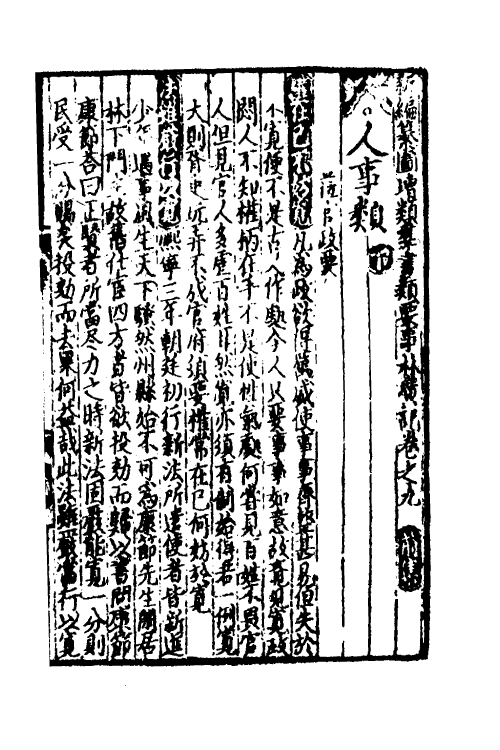 新編纂圖增類羣書類要事林廣記卷之九
人事類 下
蒞官政要
權在己何妨寬 凡為政欲得嚴威使事事集甚易但失於
不寬便不是古人作處今人只要事事如意故寬政
悶人不知權柄在手不是使性氣處何嘗見百姓不畏官
人但見官人多虐百姓耳然寬亦須有制始得若一例寬
大則胥吏近弄不成官府須要權常在己何妨於寬
熙寧三年朝廷初行新法所遣使者皆新進
少年遇事風生天下騷然州縣始不可為康節先生閒居
林下門生故舊仕宦四方者皆欲投劾而歸以書問康節
康節荅曰正賢者所當尽力之時新法固嚴能寬一分則
民受一分賜矣投劾而去果何益哉此法雖嚴當行以寬